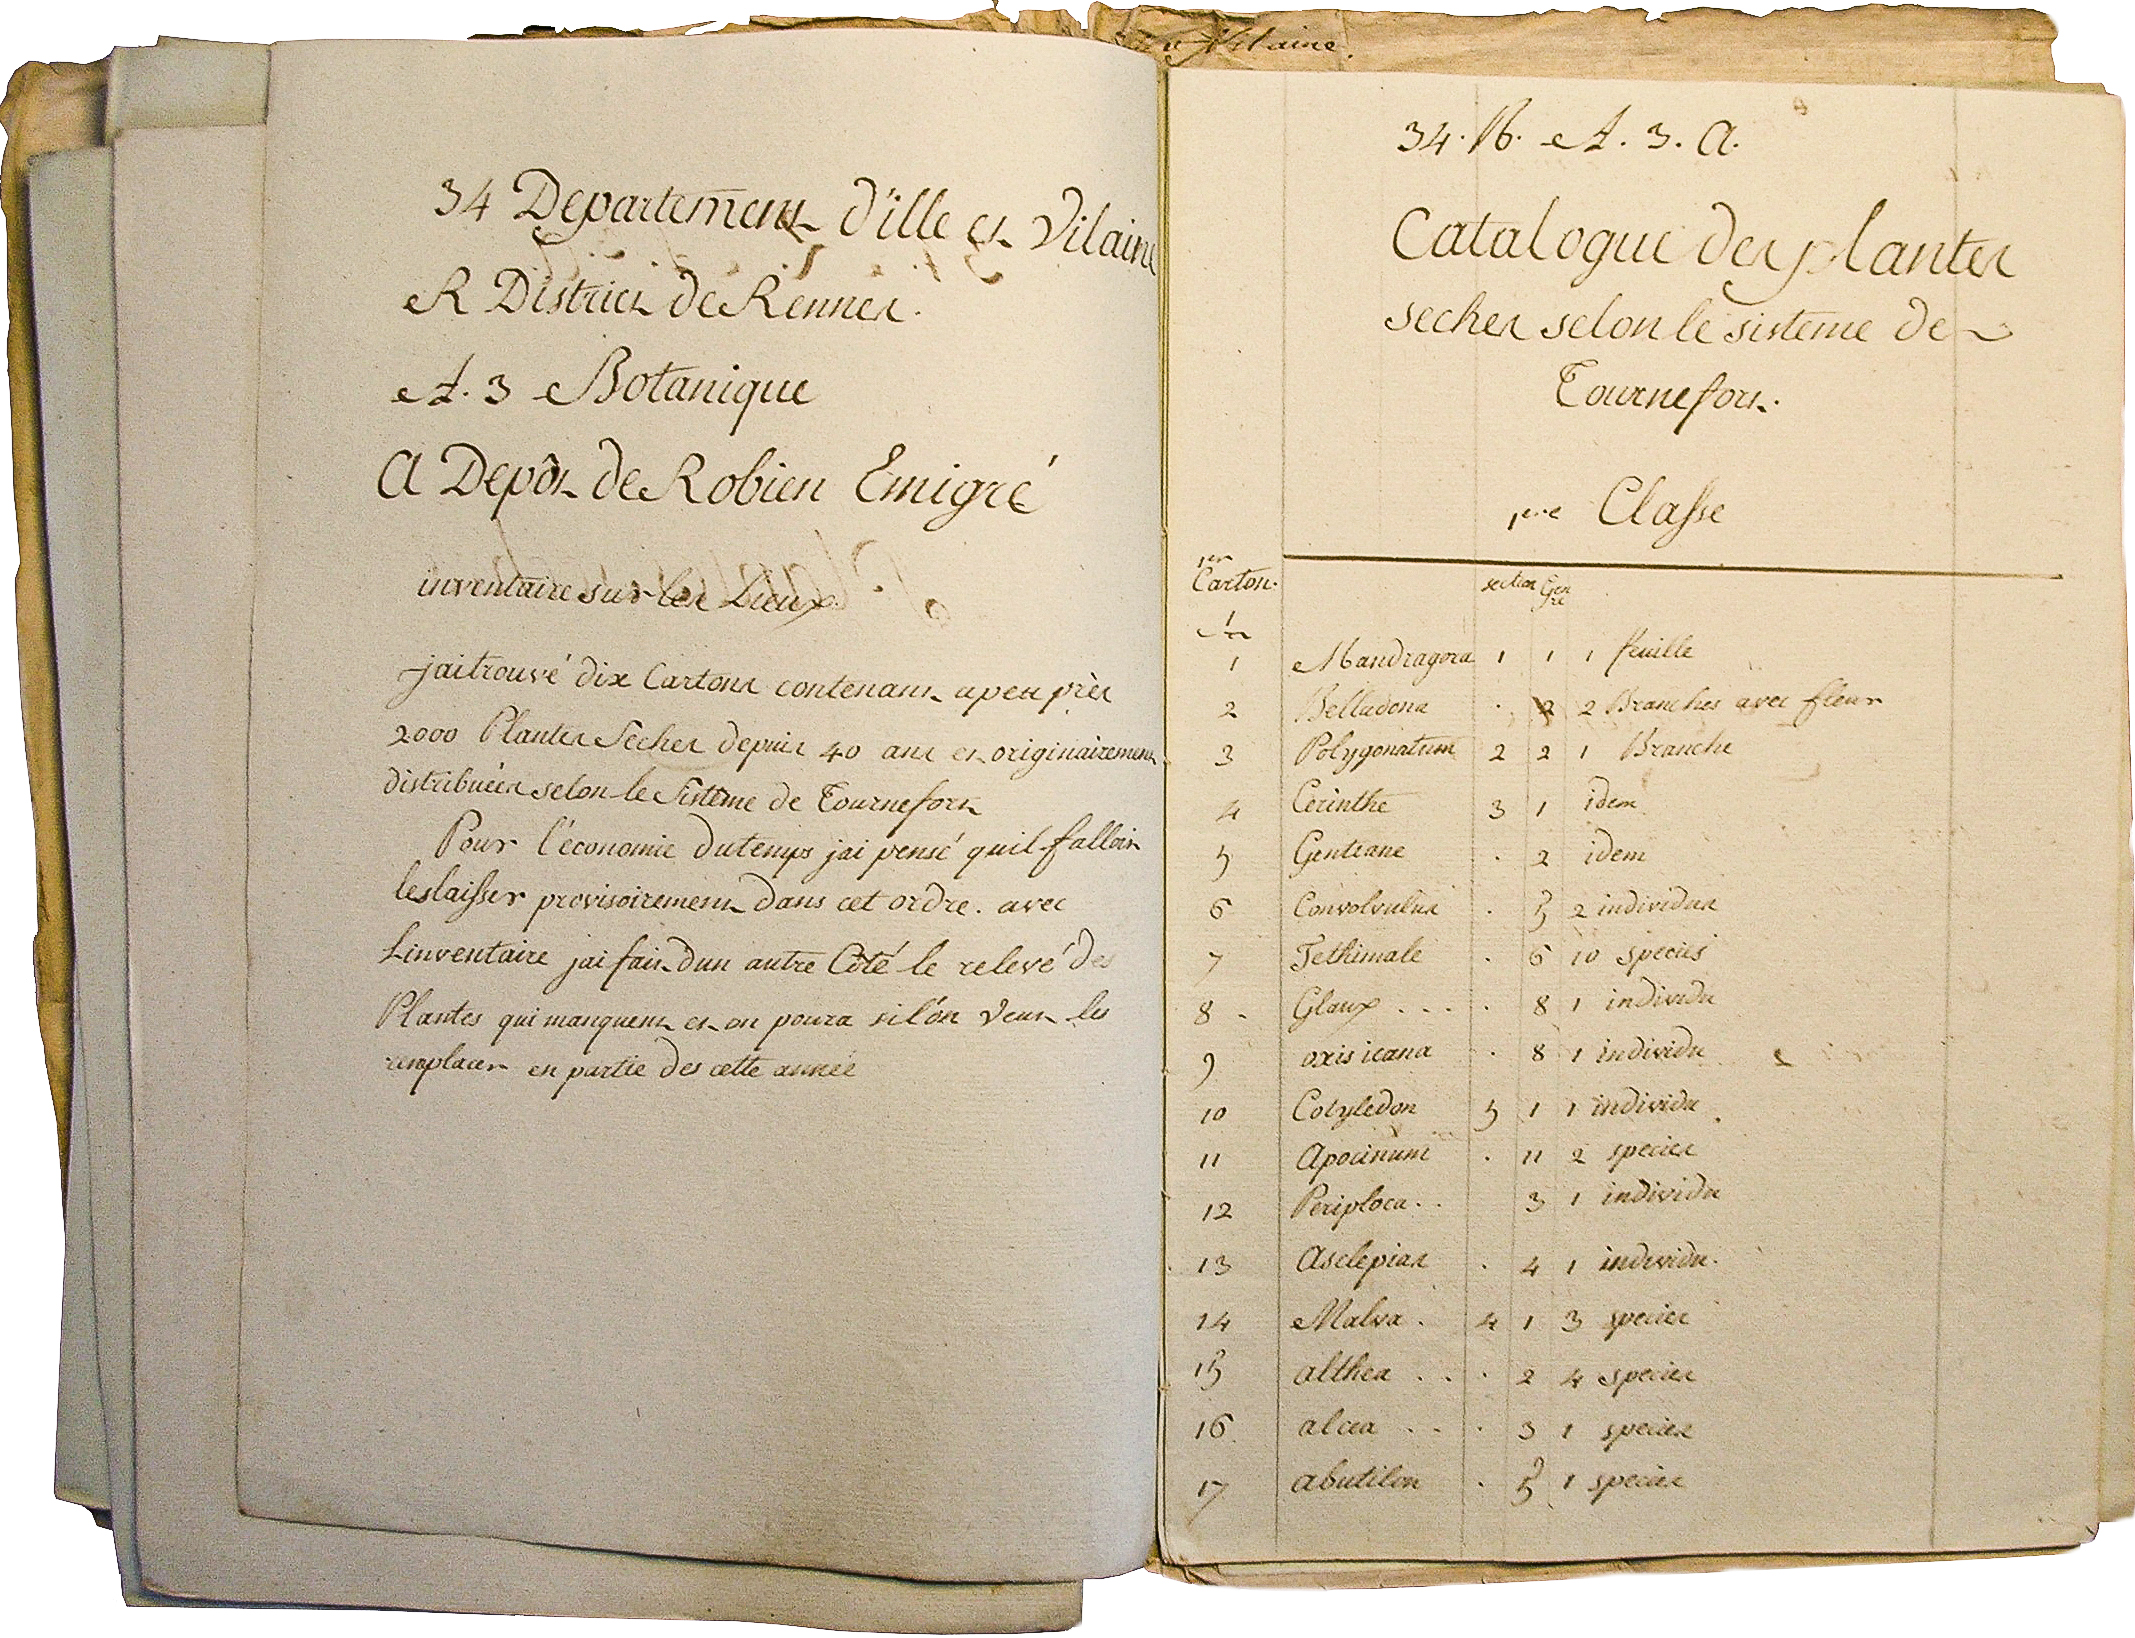 Vilaine.
34 Departement d'ille et Vilaine
R District de Rennes.
A. 3 Botanique
a Depôt de Robien Emigré
inventaire sur les Lieux.
jai trouvé dix Cartons contenant apeu près
2000 Plantes Seches depuis 40 ans et originairement
distribuées selon le Sistême de Tournefort
Pour l'économie dutemps jai pensé quil falloit
leslaisser provisoirement dans cet ordre. avec
Linventaire jai fait dun autre Côté le relevé des
Plantes qui manquent et on poura sil'on veut les
remplacer en partie des cette année
34. R. A. 3. a.
Catalogue des plantes
seches selon le sisteme de
Tournefort.
1ere Classe
1er
Carton. section Genre
1 Mandragora 1 1 1 feuille
2 Belladona . 2 2 Branches avec fleur
3 Polygonatum 2 2 1 Branche
4 Cerinthe 3 1 idem
5 Gentiane . 2 idem
6 Convolvulus . 5 2 individus
7 Tethimale . 6 10 species
8 . Glaux . . . . . 8 1 individu
9 oxis icana . 8 1 individu
10 Cotyledon 5 1 1 individu .
11 Apocinum . 11 2 species
12 Periploca . . 3 1 individu
13 Asclepias . 4 1 individu.
14 Malva . 4 1 3 species
15 althea . . . 2 4 species
16 alcea . . . 3 1 species
17 abutilon . 5 1 species